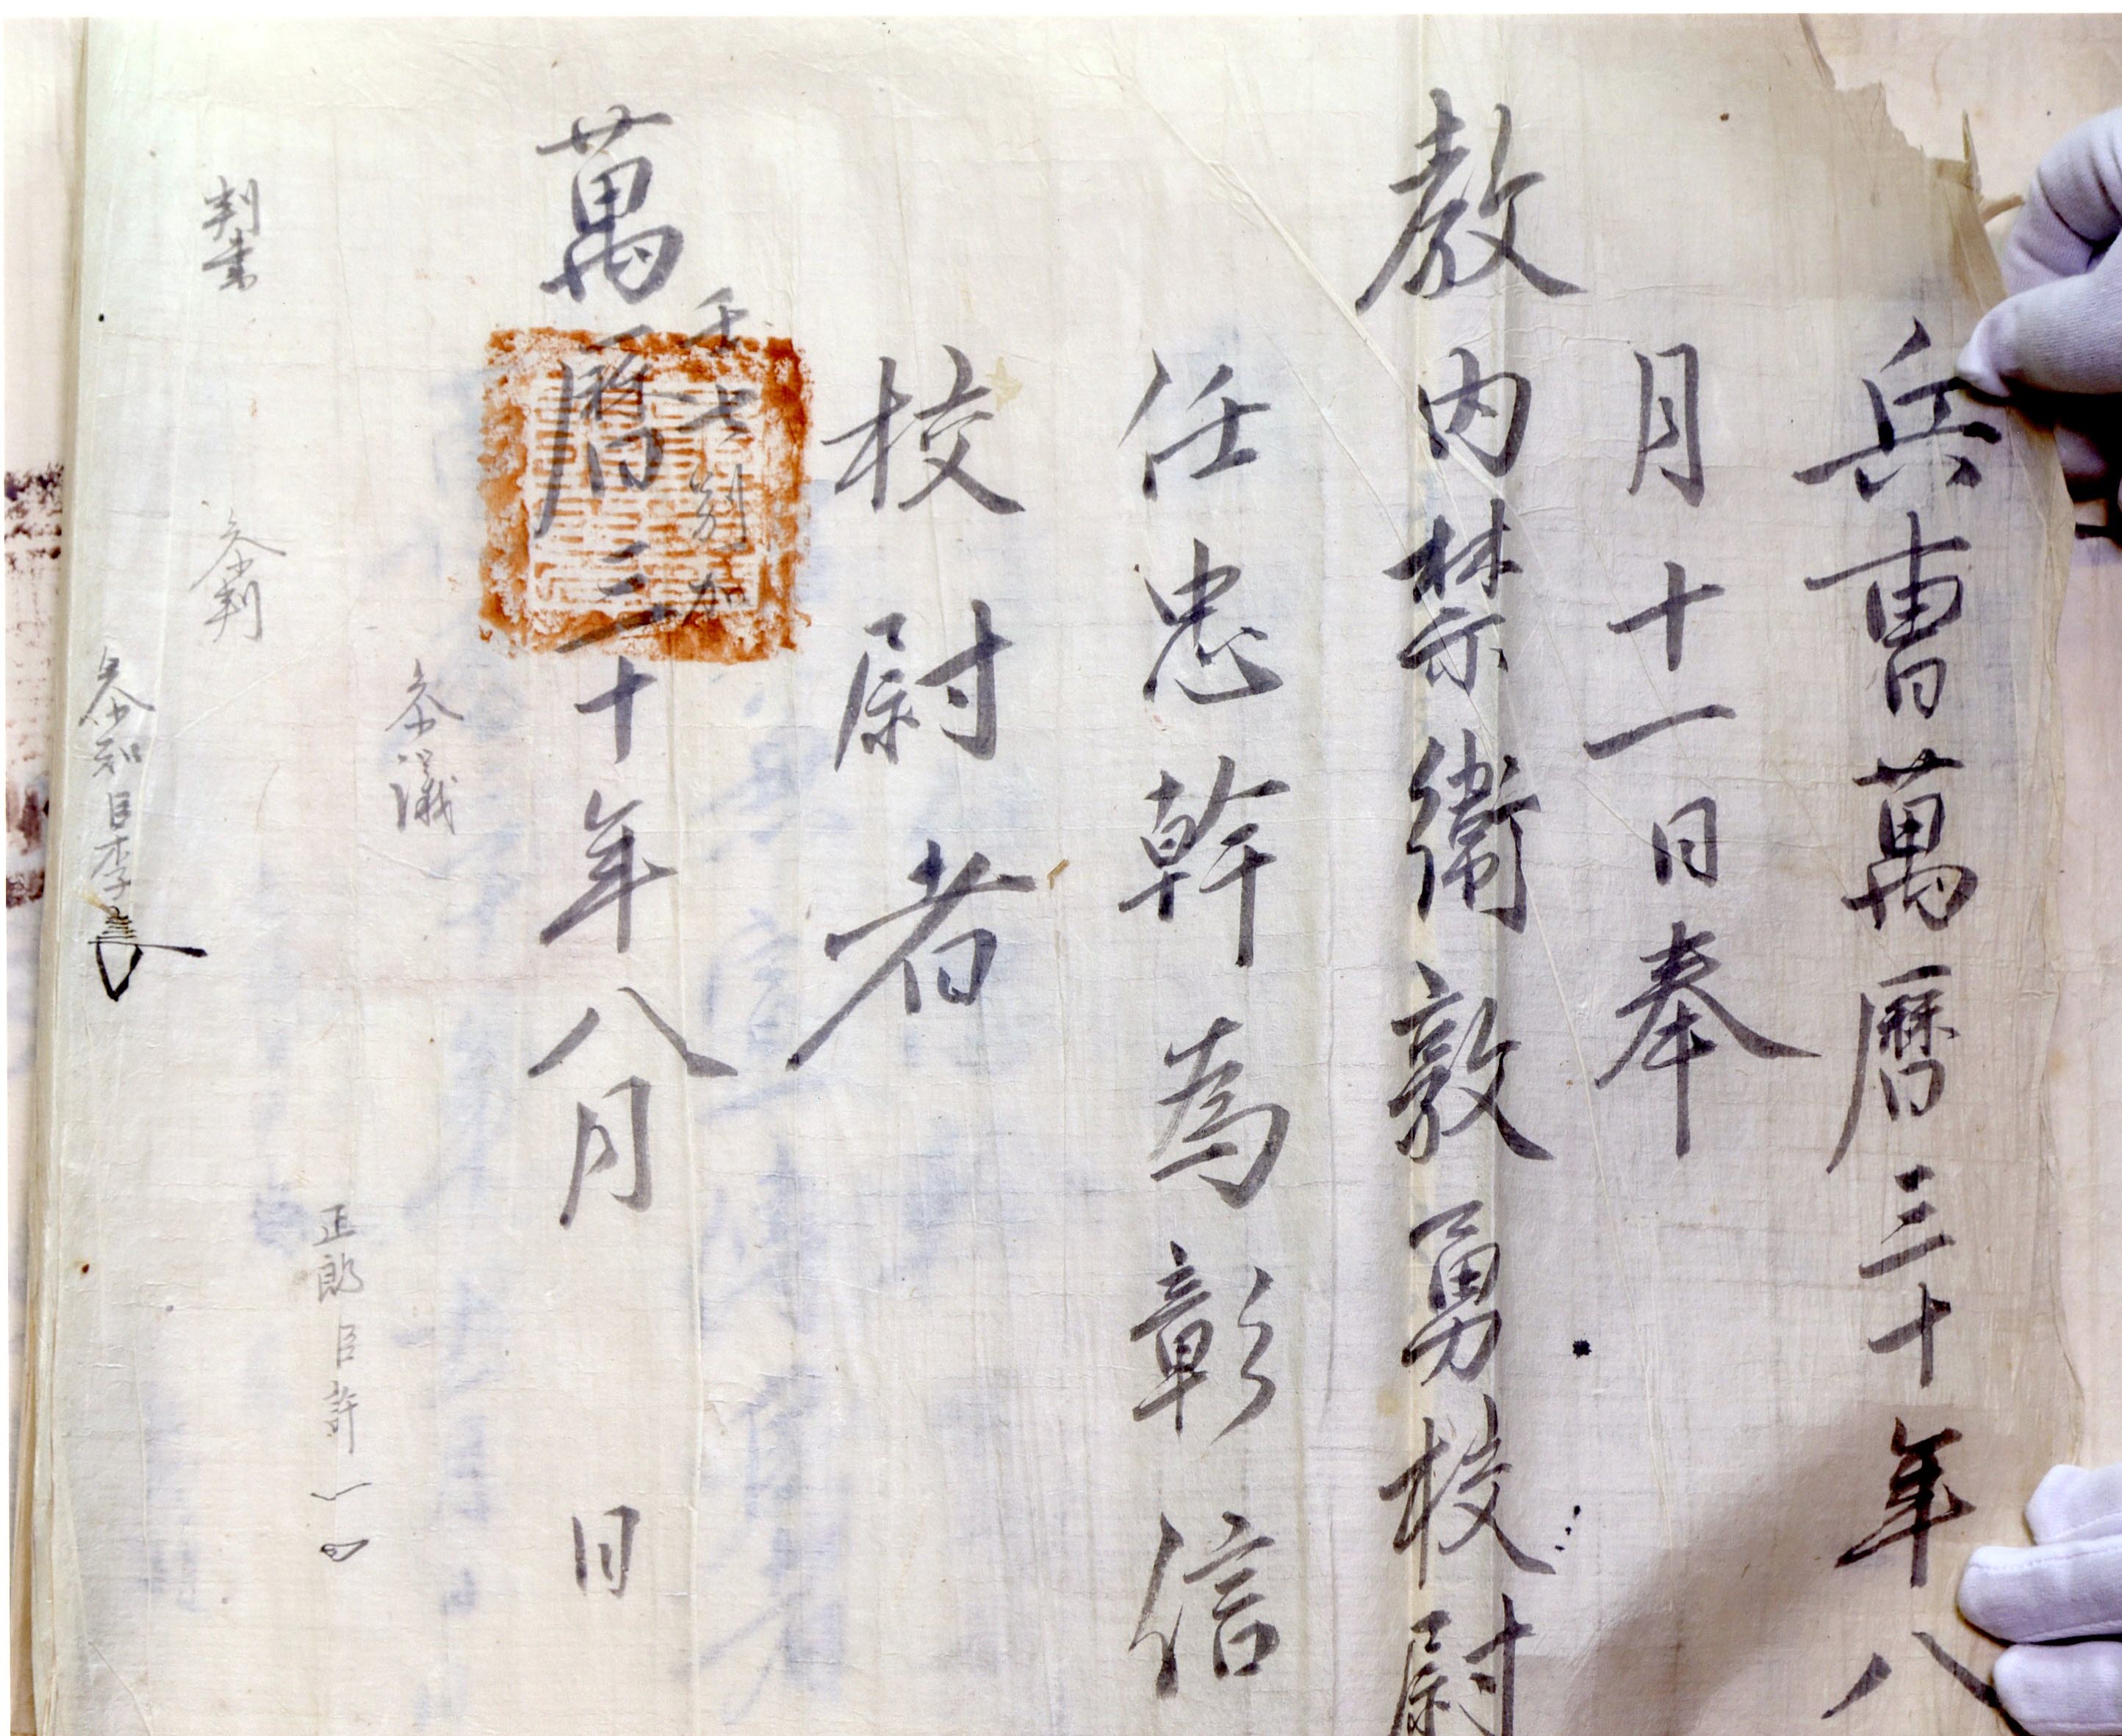 兵曺萬曆三十年八
月十一日奉
教內禁衛敦勇校尉
任忠幹為彰信
校尉者
萬曆三十年八月 日
別加
參議
正郞臣許
判書
參判
參知臣李